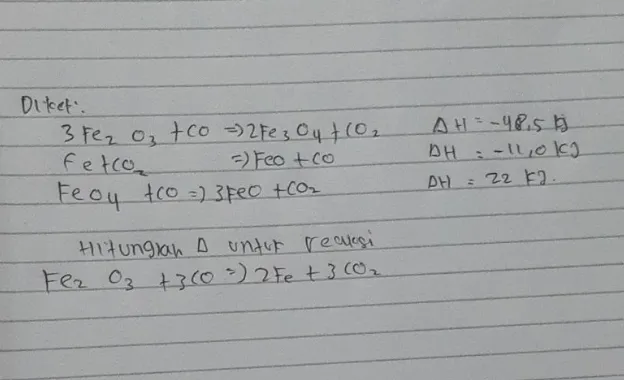 Diket:
3Fe₂ O₃ + CO => 2Fe₃O₄ + CO₂ ΔH = -48,5 kJ
Fe + CO₂ => FeO + CO ΔH = -11,0 KJ
FeO₄ + CO => 3FeO + CO₂ ΔH = 22 KJ.
Hitunglah Δ untuk reaksi
Fe₂ O₃ + 3CO => 2Fe + 3CO₂